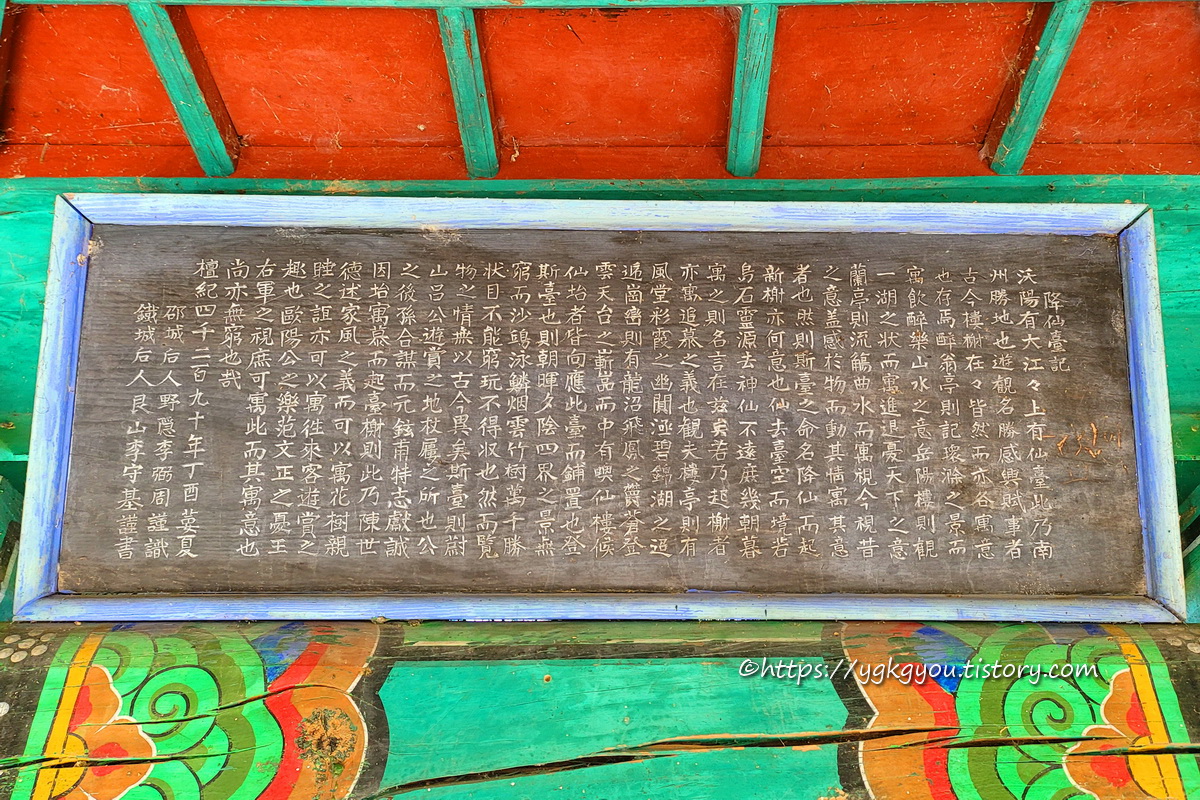 降仙臺記
沃陽有大江々上有仙臺此乃南
州勝地也遊觀名勝感興賦事者
古今樓榭在々皆然而亦各寓意
也存焉醉翁亭則記環滁之景而
寓飮醉樂山水之意岳陽樓則觀
一湖之狀而寓進退憂天下之意
蘭亭則流觴曲水而寓視今視昔
之意盖感於物而動其情寓其意
者也然則斯臺之命名降仙而起
新榭亦何意也仙去臺空而境若
烏石靈源去神仙不遠庶幾朝暮
寓之則名言在玆矣若乃起榭者
亦寓追慕之義也觀夫樓亭則有
風堂彩霞之幽闃涵碧錦湖之迢
遞崗巒則有龍沼飛鳳之鬱蒼登
雲天台之嶄嵒而中有喚仙樓候
仙坮者皆向應此臺而鋪置也登
斯臺也則朝暉夕陰四界之景無
窮而沙鷗泳鱗烟雲竹樹萬千勝
狀目不能窮玩不得収也然而覽
物之情無以古今異矣斯臺則蔚
山呂公遊賞之地杖屨之所也公
之後孫合謀而元鉉甫特志獻誠
因坮寓慕而起臺榭則此乃陳世
德述家風之義而可以寓花樹親
睦之誼亦可以寓徃來客遊賞之
趣也歐陽公之樂范文正之憂王
右軍之視庶可寓此而其寓意也
尚亦無窮也哉
檀紀四千二百九十年丁酉蓂夏
邵城后人野隱李弼周謹識
鐵城后人艮山李守基謹書
©https://ygkgyou.tistory.com